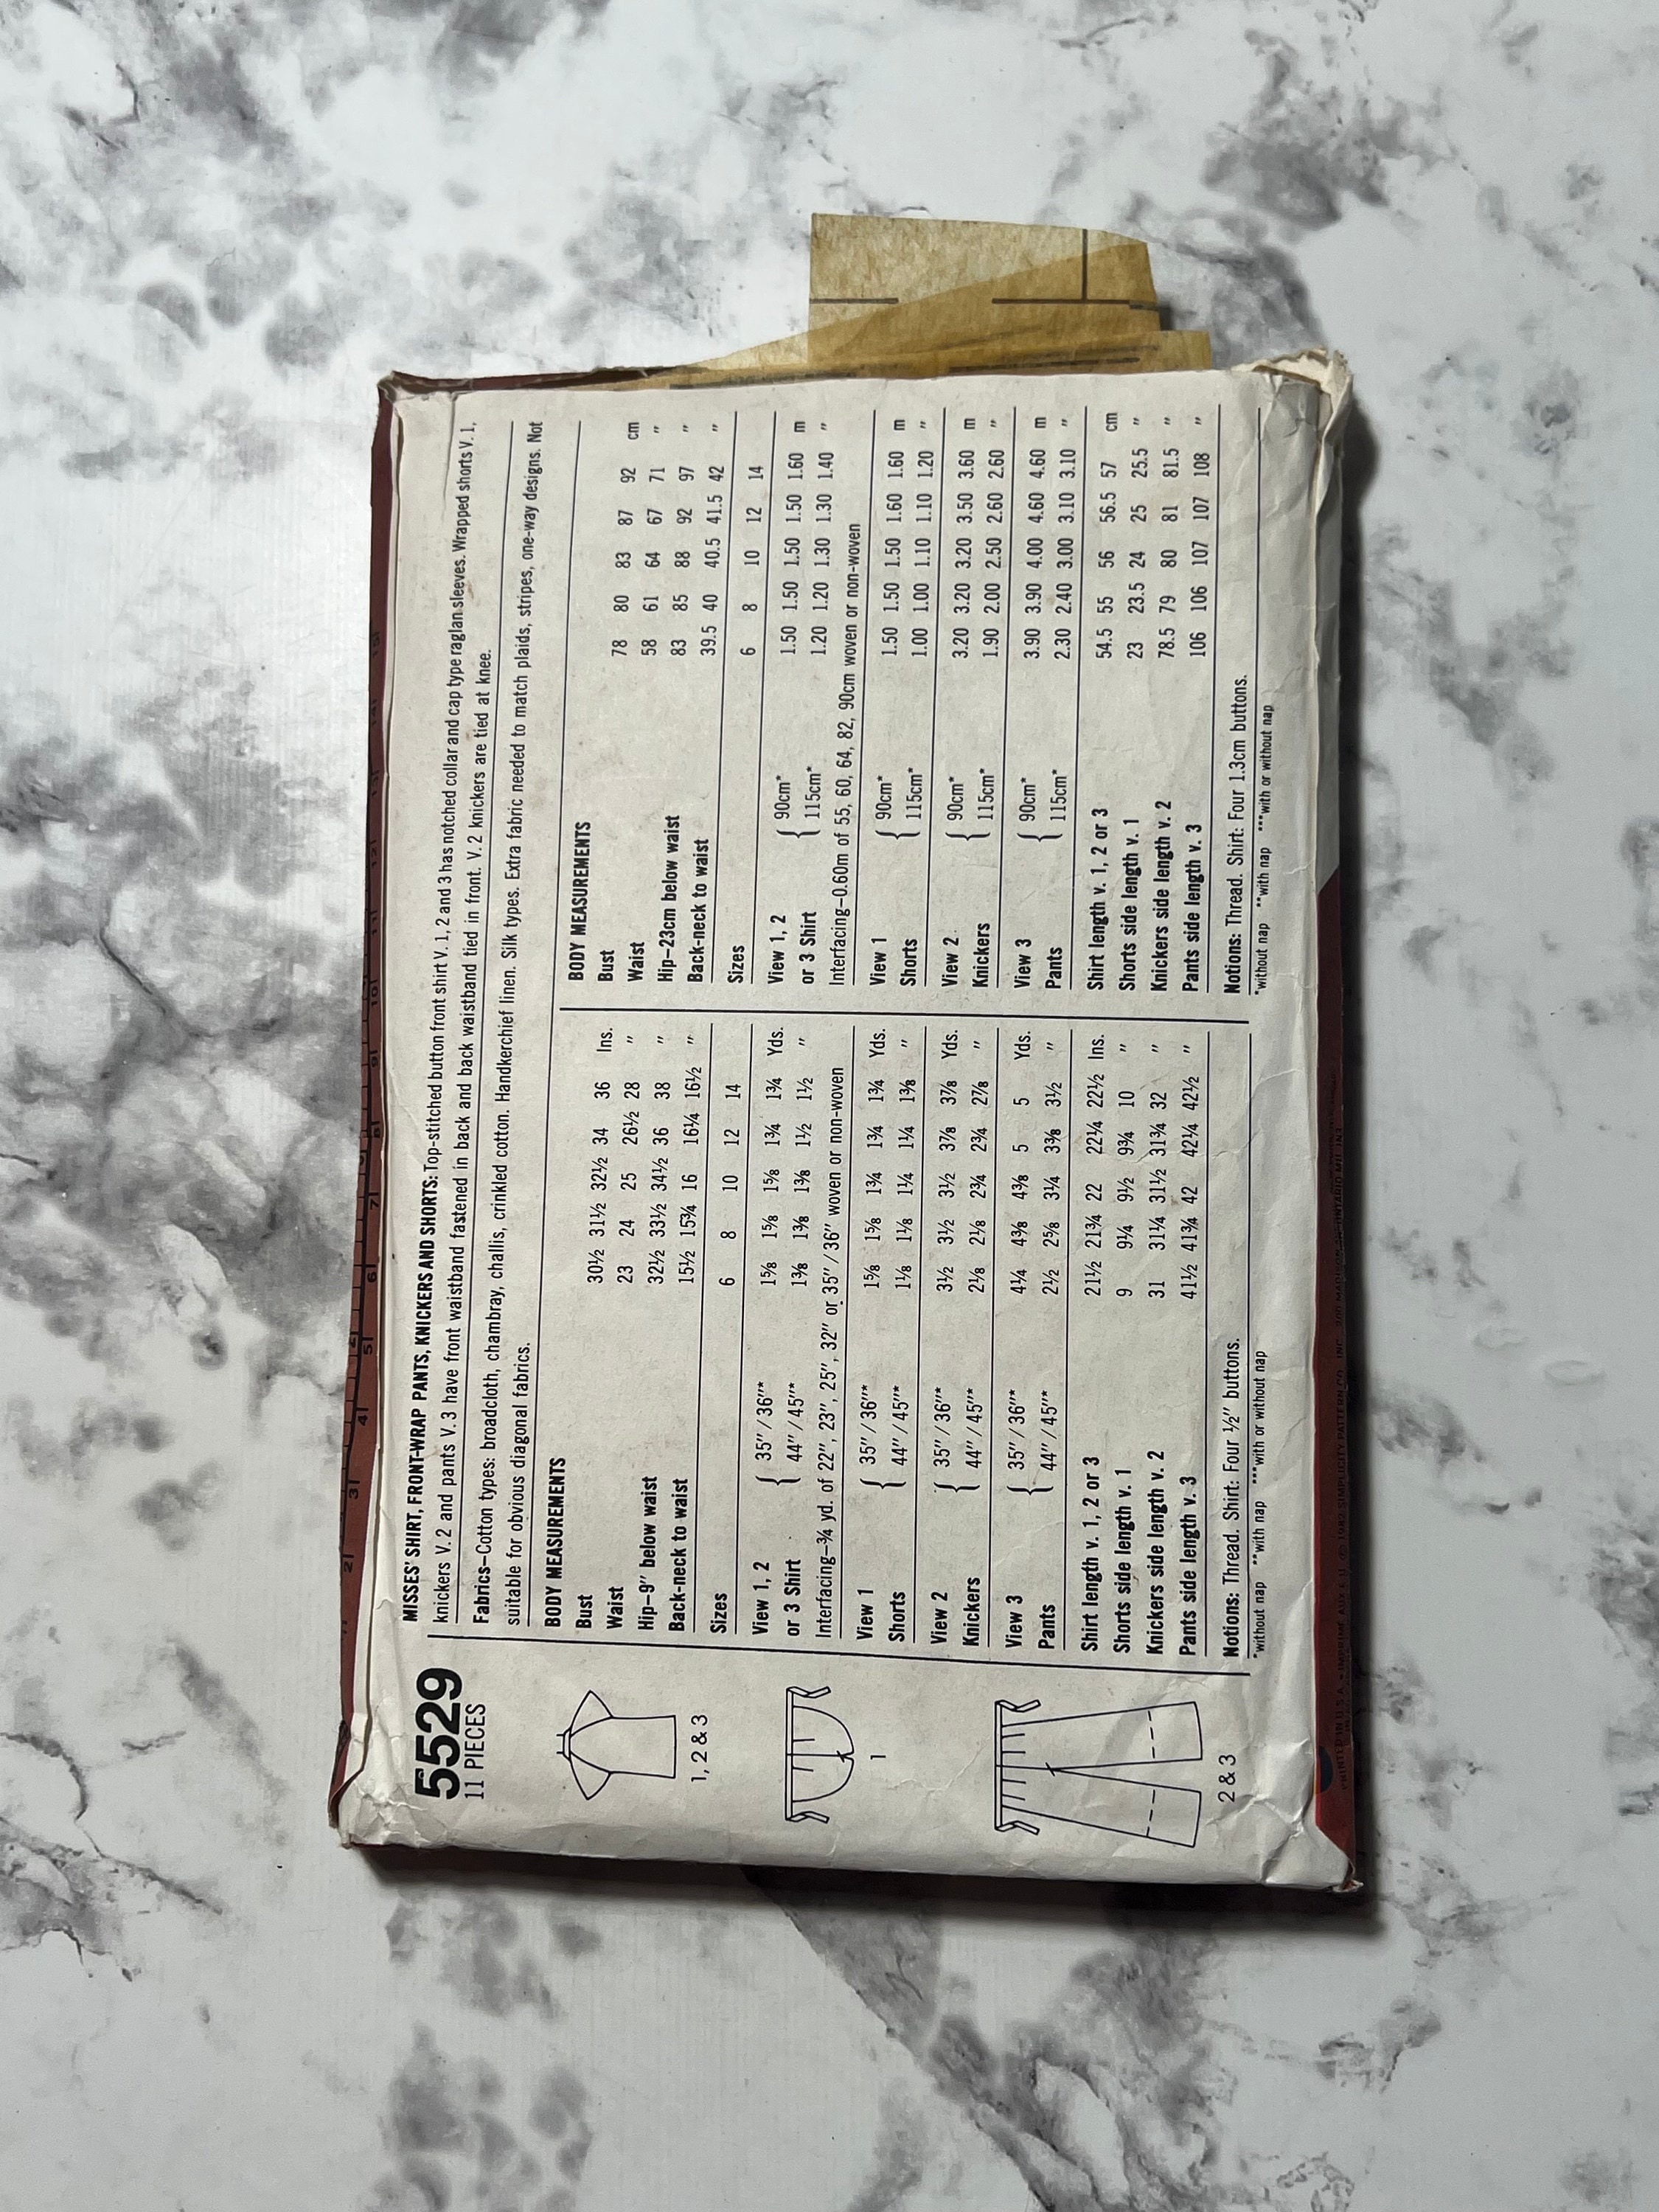 5529
11 PIECES
1, 2 & 3
1
2 & 3
MISSES' SHIRT, FRONT-WRAP PANTS, KNICKERS AND SHORTS: Top-stitched button front shirt V. 1, 2 and 3 has notched collar and cap type raglan sleeves. Wrapped shorts V. 1,
knickers V. 2 and pants V. 3 have front waistband fastened in back and back waistband tied in front. V. 2 knickers are tied at knee.
Fabrics–Cotton types: broadcloth, chambray, challis, crinkled cotton. Handkerchief linen. Silk types. Extra fabric needed to match plaids, stripes, one-way designs. Not
suitable for obvious diagonal fabrics.
BODY MEASUREMENTS
Bust 30½ 31½ 32½ 34 36 Ins.
Waist 23 24 25 26½ 28 "
Hip–9" below waist 32½ 33½ 34½ 36 38 "
Back-neck to waist 15½ 15¾ 16 16¼ 16½ "
Sizes 6 8 10 12 14
View 1, 2 { 35" / 36"* 1⅝ 1⅝ 1⅝ 1¾ 1¾ Yds.
or 3 Shirt 44" / 45"* 1⅜ 1⅜ 1⅜ 1½ 1½ "
Interfacing–¾ yd. of 22", 23", 25", 32" or 35" / 36" woven or non-woven
View 1 { 35" / 36"* 1⅝ 1⅝ 1¾ 1¾ 1¾ Yds.
Shorts 44" / 45"* 1⅛ 1⅛ 1¼ 1¼ 1⅜ "
View 2 { 35" / 36"* 3½ 3½ 3½ 3⅞ 3⅞ Yds.
Knickers 44" / 45"* 2⅛ 2⅛ 2¾ 2¾ 2⅞ "
View 3 { 35" / 36"* 4¼ 4⅜ 4⅜ 5 5 Yds.
Pants 44" / 45"* 2½ 2⅝ 3¼ 3⅜ 3½ "
Shirt length v. 1, 2 or 3 21½ 21¾ 22 22¼ 22½ Ins.
Shorts side length v. 1 9 9¼ 9½ 9¾ 10 "
Knickers side length v. 2 31 31¼ 31½ 31¾ 32 "
Pants side length v. 3 41½ 41¾ 42 42¼ 42½ "
Notions: Thread. Shirt: Four ½" buttons.
*without nap **with nap ***with or without nap
BODY MEASUREMENTS
Bust 78 80 83 87 92 cm
Waist 58 61 64 67 71 "
Hip–23cm below waist 83 85 88 92 97 "
Back-neck to waist 39.5 40 40.5 41.5 42 "
Sizes 6 8 10 12 14
View 1, 2 { 90cm* 1.50 1.50 1.50 1.50 1.60 m
or 3 Shirt 115cm* 1.20 1.20 1.30 1.30 1.40 "
Interfacing–0.60m of 55, 60, 64, 82, 90cm woven or non-woven
View 1 { 90cm* 1.50 1.50 1.50 1.60 1.60 m
Shorts 115cm* 1.00 1.00 1.10 1.10 1.20 "
View 2 { 90cm* 3.20 3.20 3.20 3.50 3.60 m
Knickers 115cm* 1.90 2.00 2.50 2.60 2.60 "
View 3 { 90cm* 3.90 3.90 4.00 4.60 4.60 m
Pants 115cm* 2.30 2.40 3.00 3.10 3.10 "
Shirt length v. 1, 2 or 3 54.5 55 56 56.5 57 cm
Shorts side length v. 1 23 23.5 24 25 25.5 "
Knickers side length v. 2 78.5 79 80 81 81.5 "
Pants side length v. 3 106 106 107 107 108 "
Notions: Thread. Shirt: Four 1.3cm buttons.
*without nap **with nap ***with or without nap